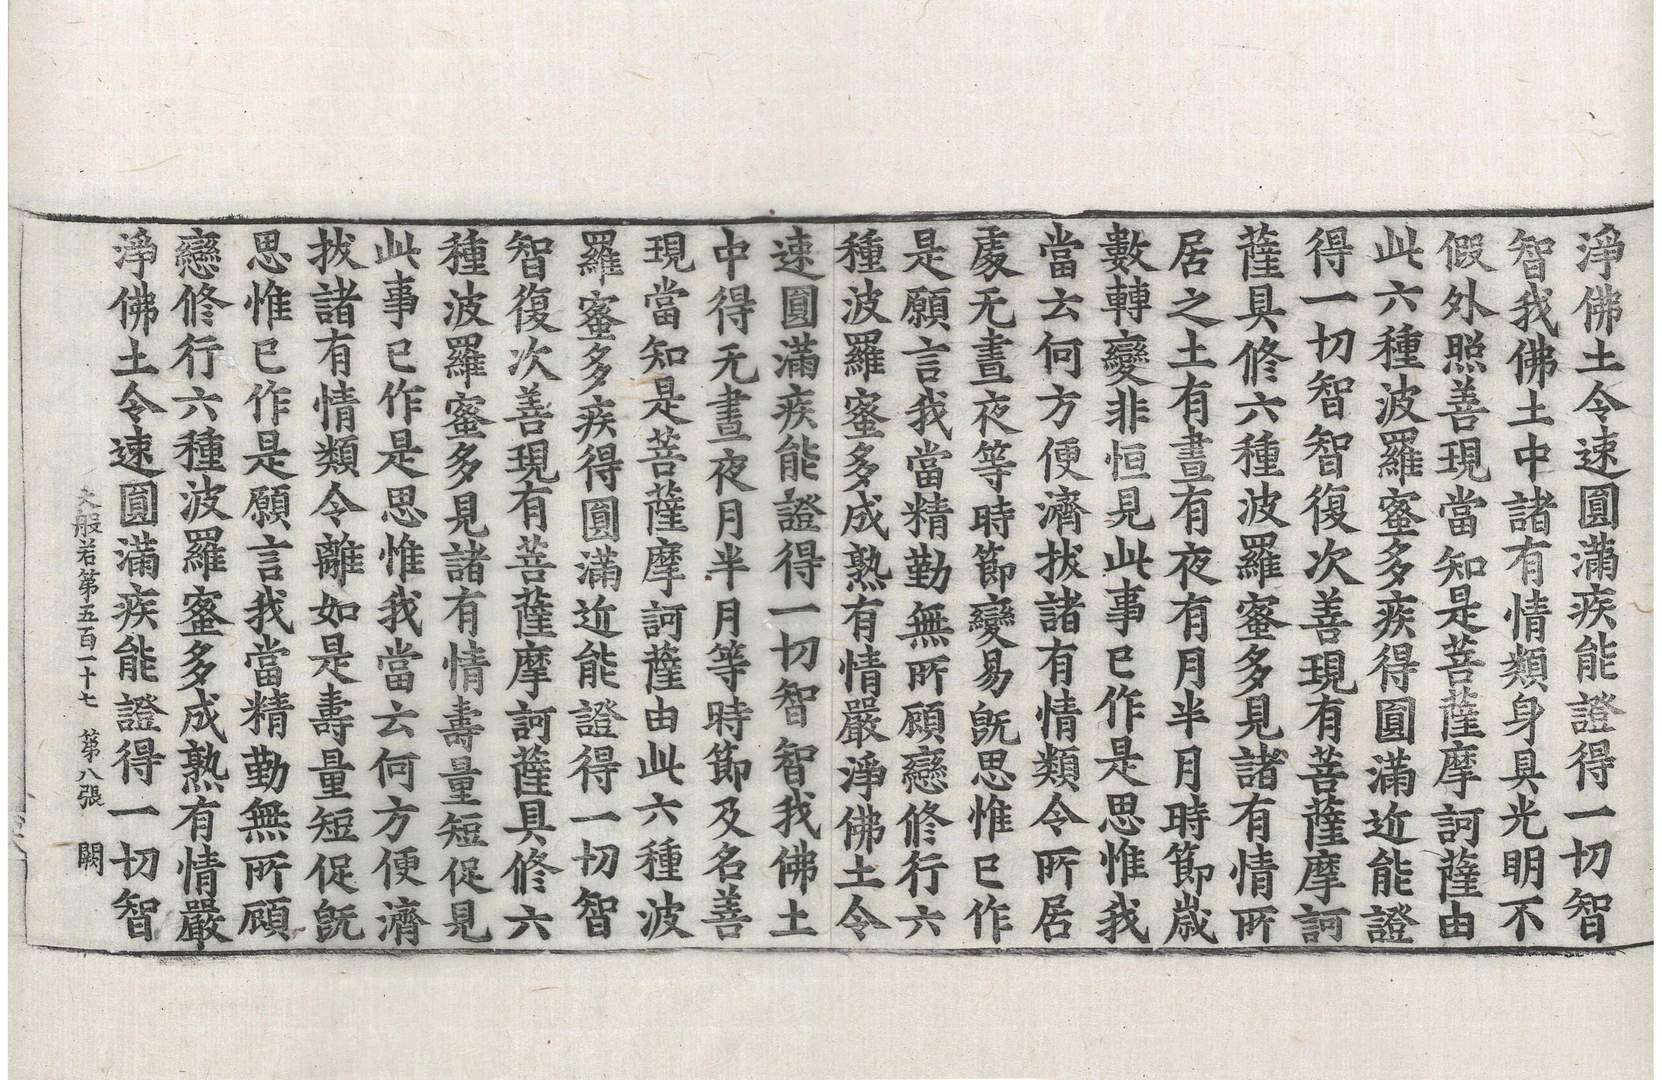 淨佛土令速圓滿疾能證得一切智
智我佛土中諸有情類身具光明不
假外照善現當知是菩薩摩訶薩由
此六種波羅蜜多疾得圓滿近能證
得一切智智復次善現有菩薩摩訶
薩具修六種波羅蜜多見諸有情所
居之土有晝有夜有月半月時節歲
數轉變非恒見此事已作是思惟我
當云何方便濟拔諸有情類令所居
處无晝夜等時節變易旣思惟已作
是願言我當精勤無所顧戀修行六
種波羅蜜多成熟有情嚴淨佛土令
速圓滿疾能證得一切智智我佛土
中得无晝夜月半月等時節及名善
現當知是菩薩摩訶薩由此六種波
羅蜜多疾得圓滿近能證得一切智
智復次善現有菩薩摩訶薩具修六
種波羅蜜多見諸有情壽量短促見
此事已作是思惟我當云何方便濟
拔諸有情類令離如是壽量短促旣
思惟已作是願言我當精勤無所顧
戀修行六種波羅蜜多成熟有情嚴
淨佛土令速圓滿疾能證得一切智
大般若第五百一十七 第八張 闕